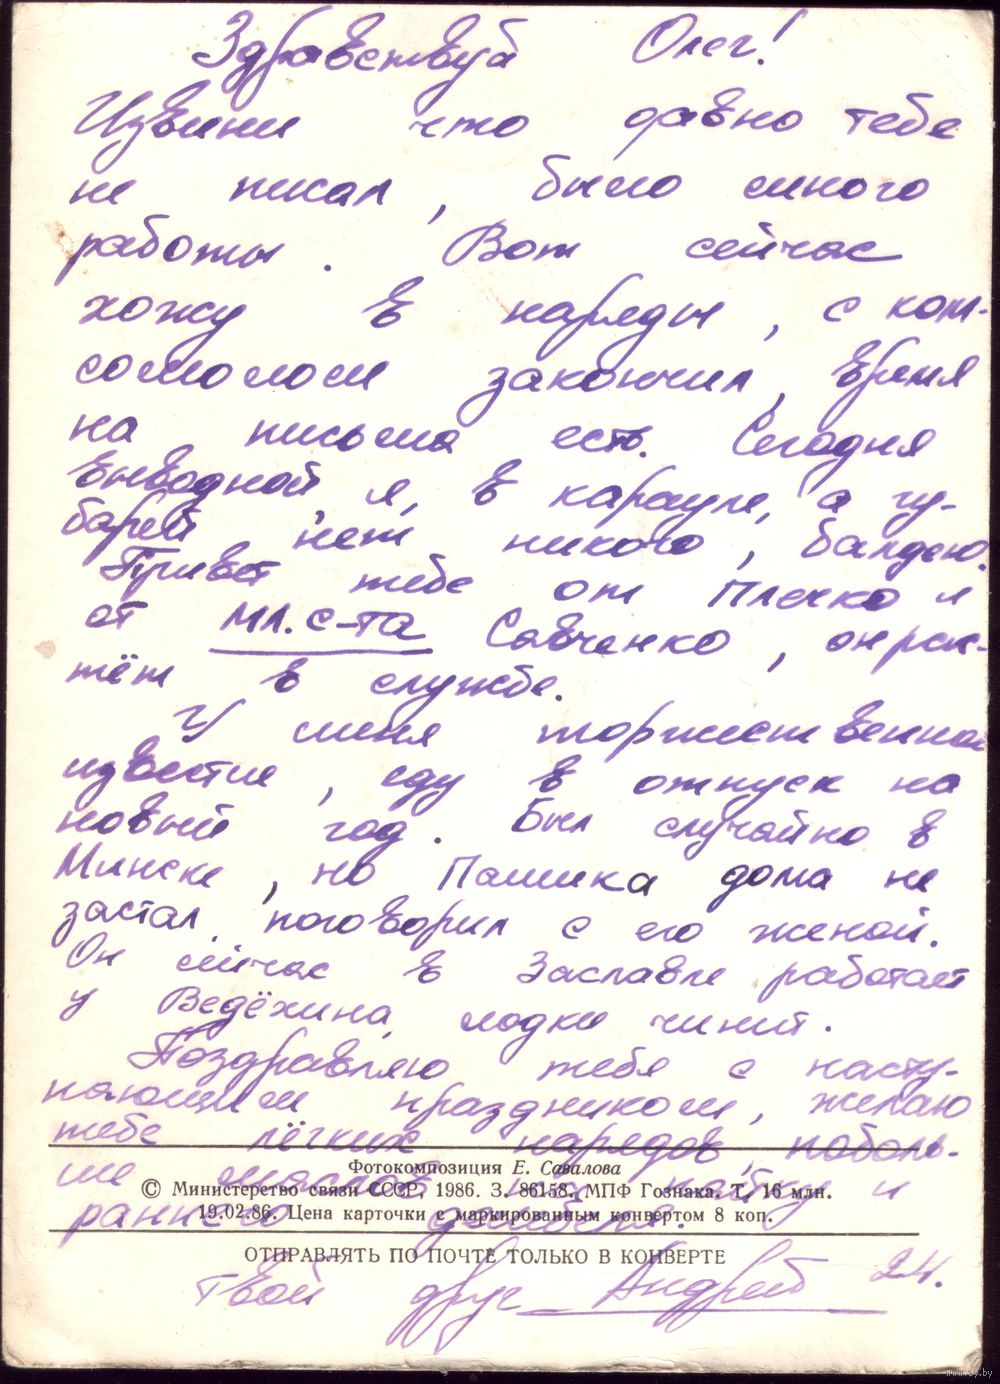 Здравствуй Олег!
Извини что давно тебе
не писал, было много
работы. Вот сейчас
хожу в наряды, с ком-
сомолом закончил, время
на письма есть. Сегодня
выводной, я, в карауле, а гу-
барей нет никого, балдею.
Привет тебе от Плечко и
от мл. с-та Савченко, он рас-
тёт в службе.
У меня торжественное
известие, еду в отпуск на
новый год. Был случайно в
Минске, но Пашика дома не
застал, поговорил с его женой.
Он сейчас в Заславле работает
у Ведёхина, лодки чинит.
Поздравляю тебя с насту-
пающим праздником, желаю
тебе лёгких нарядов, поболь-
ше масла на пайку и
раннего дембеля.
Фотокомпозиция Е. Савалова
© Министерство связи СССР, 1986. З. 86158. МПФ Гознака. Т. 16 млн.
19.02.86. Цена карточки с маркированным конвертом 8 коп.
ОТПРАВЛЯТЬ ПО ПОЧТЕ ТОЛЬКО В КОНВЕРТЕ
твой друг Андрей 24.